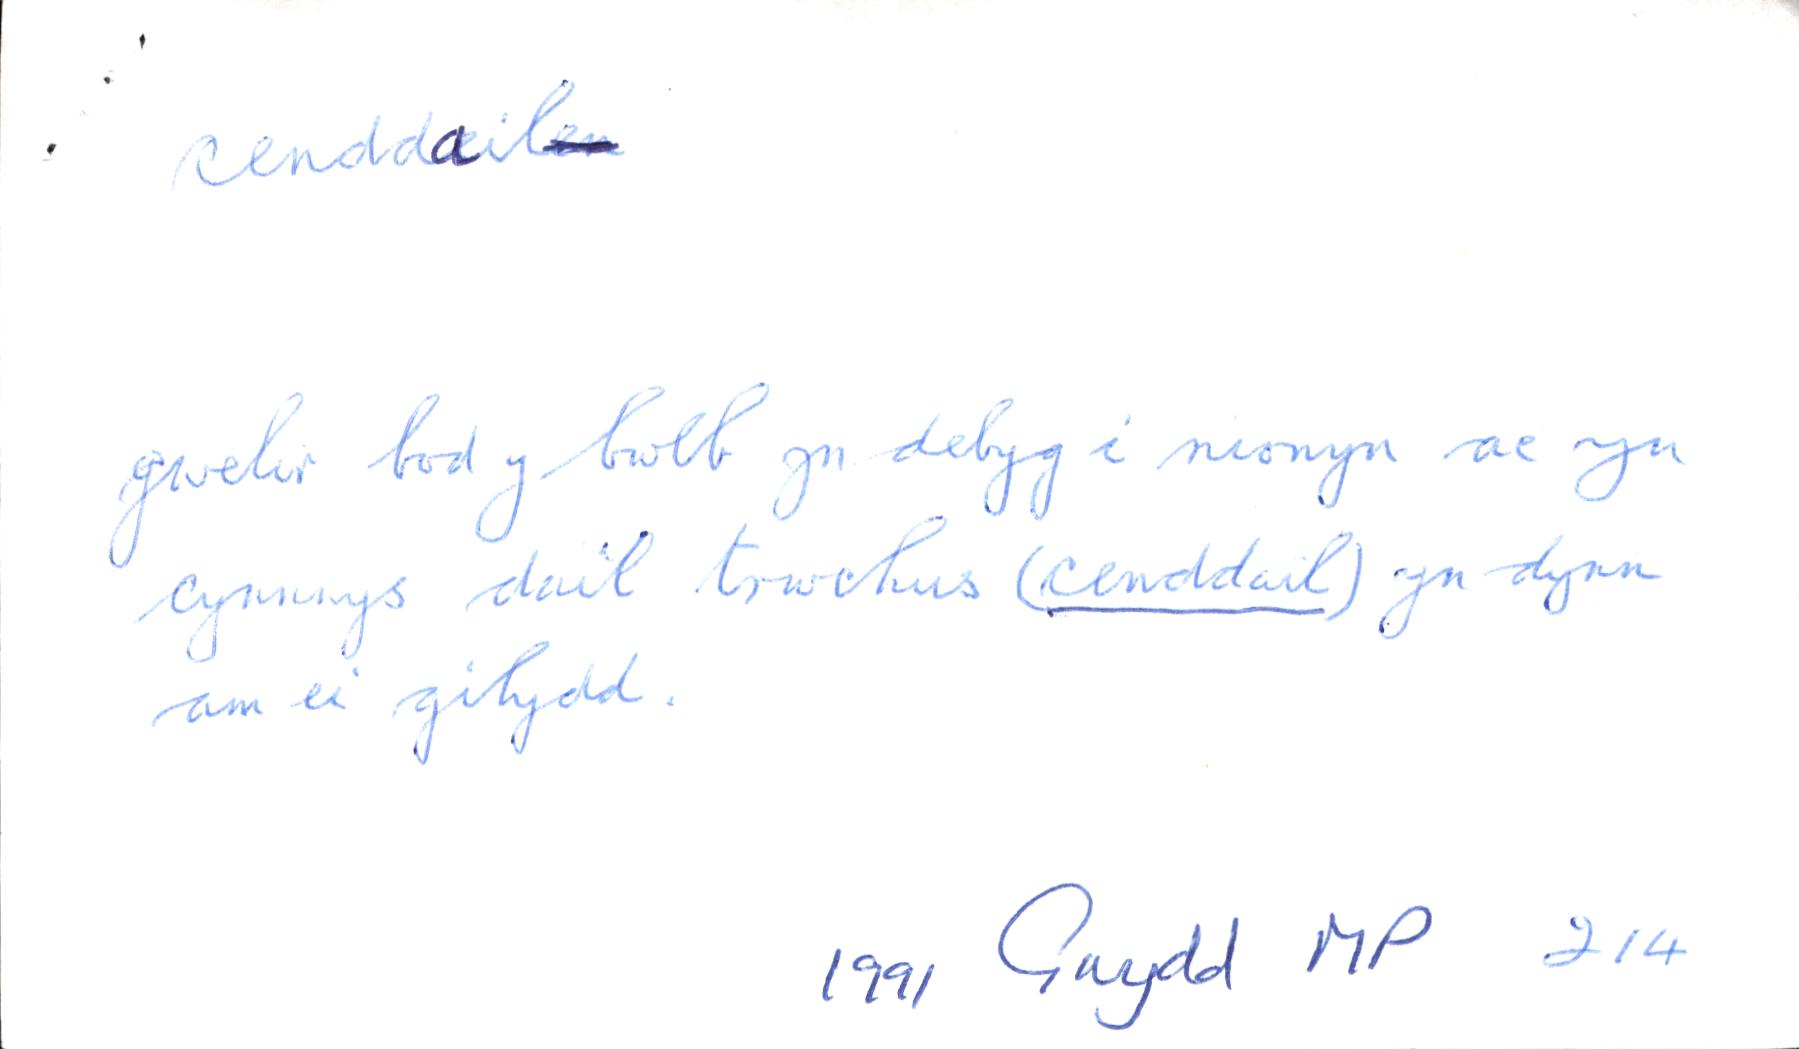 cenddail
gwelir bod y bwlb yn debyg i nionyn ac yn
cynnwys dail trwchus (cenddail) yn dynn
am ei gilydd.
1991 Gwydd MP 214